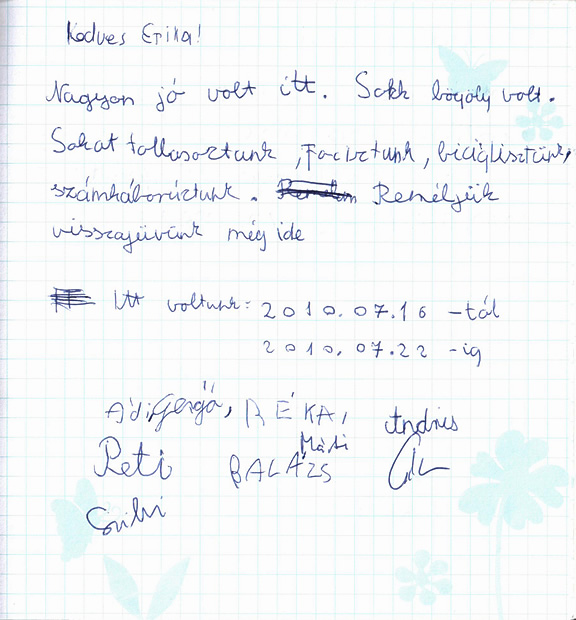 Kedves Erika!
Nagyon jó volt itt. Sokk bögöly volt.
Sokat tollasoztunk, fociztunk, bicigliztünk,
számháborúztunk. Reméljük
visszajövünk még ide
Itt voltunk: 2010.07.16 -tól
2010.07.22 -ig
Ádi, Gergő, RÉKA, András
Peti BALÁZS Máti
Szilvi